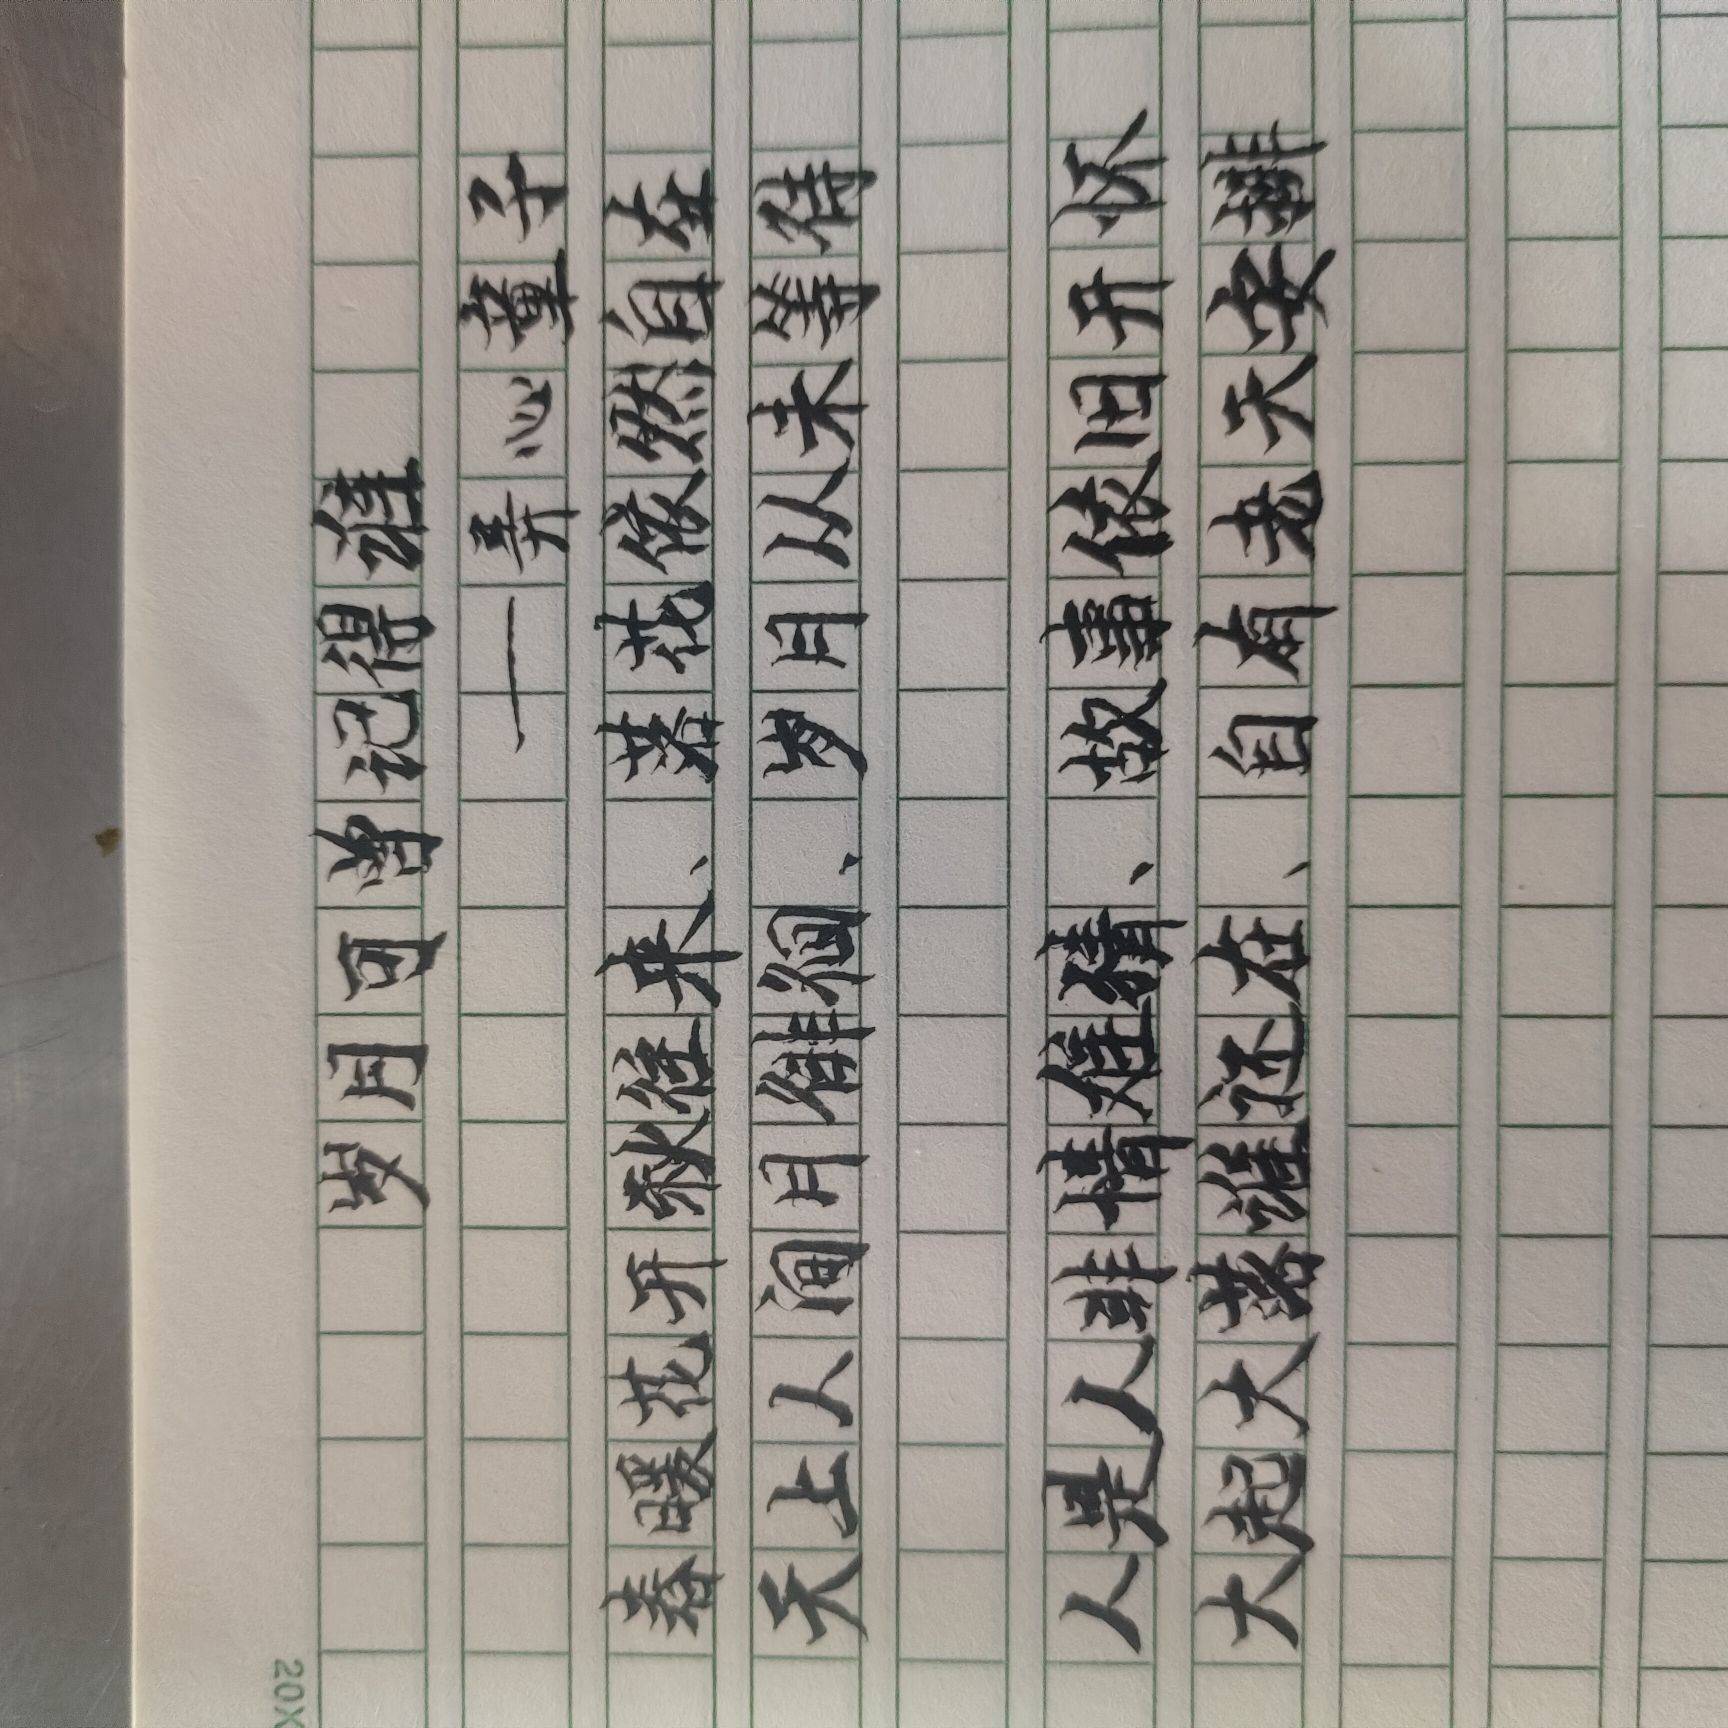 岁月可曾记得谁
——弄心童子
春暖花开秋往来、落花依然自在
天上人间月徘徊、岁月从未等待
人是人非情难猜、故事依旧开怀
大起大落谁还在、自有老天安排
20X